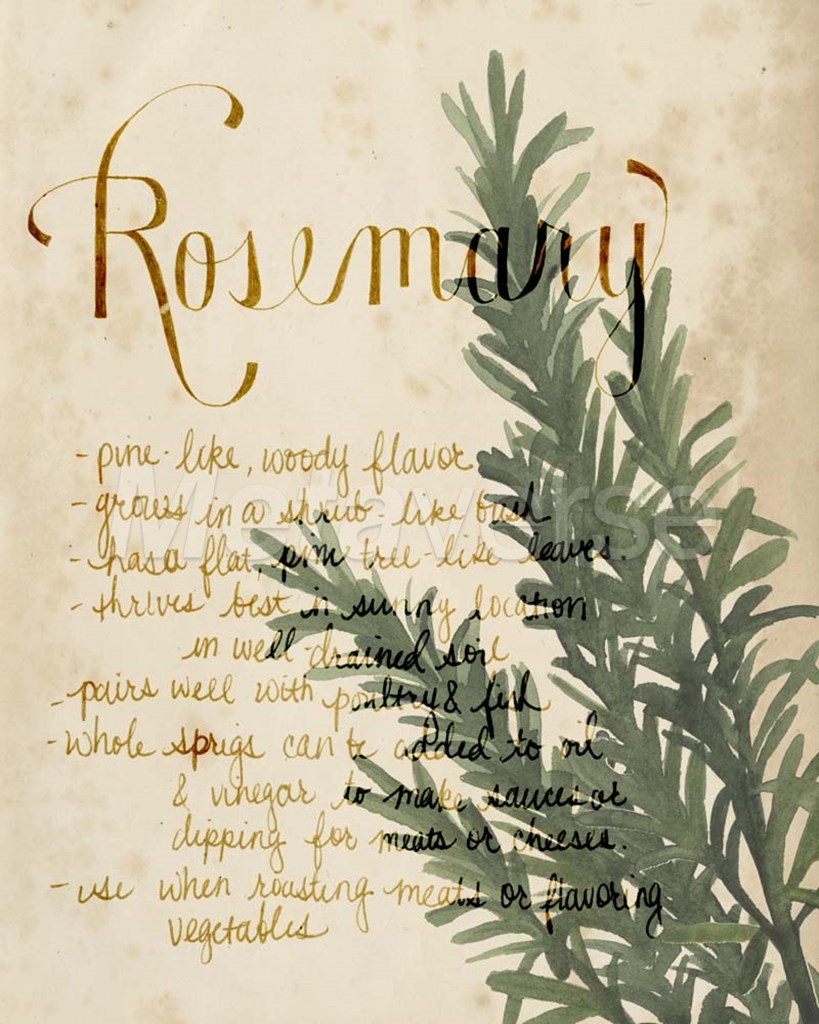 Rosemary
- pine-like, woody flavor
- grows in a shrub-like bush
- has a flat, pine tree-like leaves.
- thrives best in sunny location
in well-drained soil
- pairs well with poultry & fish
- whole sprigs can be added to oil
& vinegar to make sauces or
dipping for meats or cheeses.
- use when roasting meats or flavoring
vegetables
Metaverse